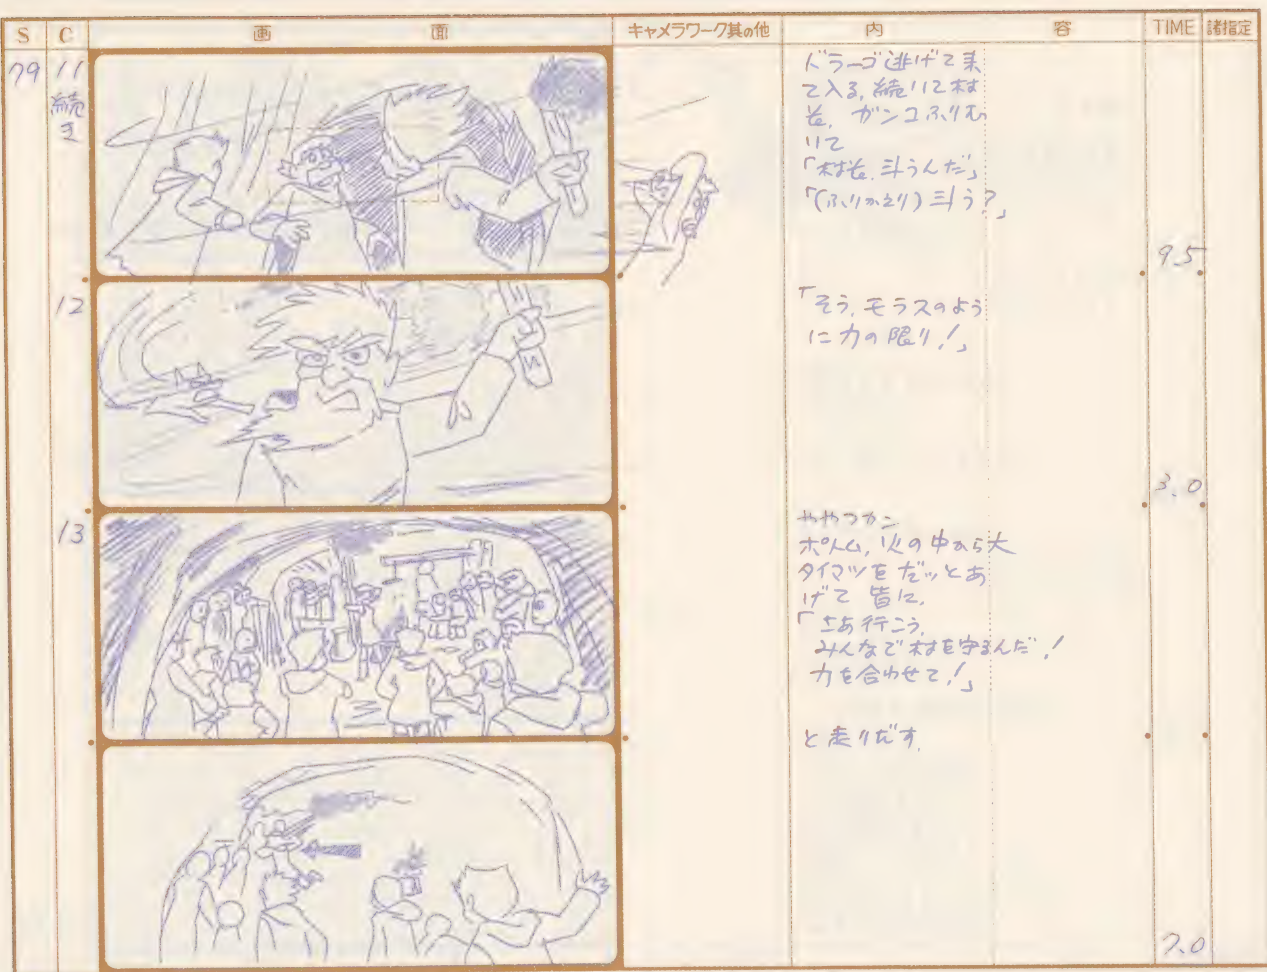 S C 画面 キャメラワーク其の他 内容 TIME 諸指定
79 11
続き
ドラーゴ逃げて来
て入る, 続いて村
長, ガンコふりむ
いて
「村長, 斗うんだ」
「(ふりかえり) 斗う?」
9.5
12
「そう, モラスのよう
に力の限り!」
3.0
13
ややフカン
ポトム, 火の中から大
タイマツをだッとあ
げて 皆に,
「さあ行こう,
みんなで村を守るんだ!
力を合わせて!」
と走りだす.
7.0